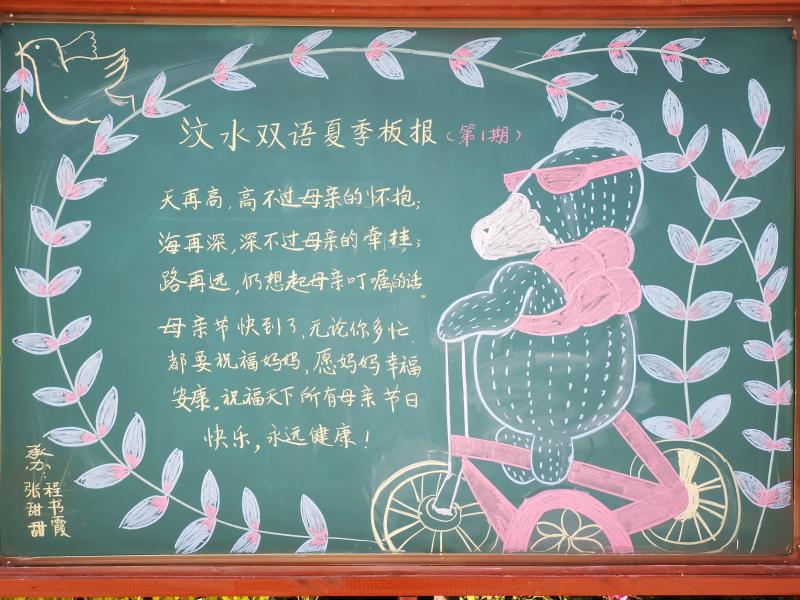 汶水双语夏季板报（第1期）
天再高，高不过母亲的怀抱；
海再深，深不过母亲的牵挂；
路再远，仍想起母亲叮嘱的话。
母亲节快到了，无论你多忙.
都要祝福妈妈，愿妈妈幸福
安康。祝福天下所有母亲节日
快乐，永远健康！
承办：
程书霞
张甜甜